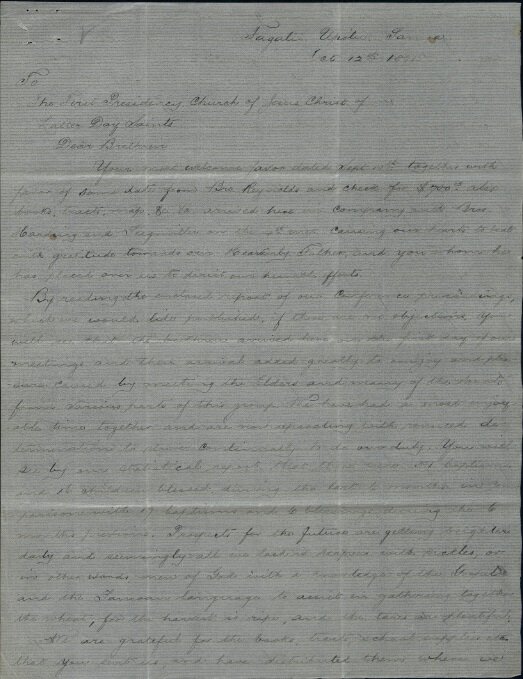 Fagalii Upolu, Samoa
Oct 12th 18
To
The First Presidency Church of Jesus Christ of
Latter Day Saints
Dear Brethren
Your most welcome favor dated Sept together with
favor of same date from Bro Reynolds and check for also
books, tracts, maps, &c &c arrived here in company with Bros
and on the causing our hearts to beat
with gratitude towards our Heavenly Father, and you whom he
has placed over us to direct our humble efforts.
By reading the enclosed report of our Conference proceedings,
which we would like published, if there are no objections, you
will see that the brethren arrived here on the first day of our
meetings and their arrival added greatly to the joy and pleas
ure caused by meeting the Elders and many of the Saints
from various parts of this group. We have had a most enjoy
able time together and are now separating with renewed de
termination to strive continually to do our duty. You will
see by our statistical report that there were baptisms
and 16 children blessed during the last 6 months in com
parison with 17 baptisms and 6 blessings during the 6
months previous. Prospects for the future are getting brighter
daily and seemingly all we lack is reapers with sickles, or
in other words men of God with a knowledge of the
and the Samoan language to assist in gathering together
the wheat, for the harvest is ripe, and the tares are plentiful.
We are grateful for the books, tracts, school supplies etc
that you sent us, and have distributed them where we